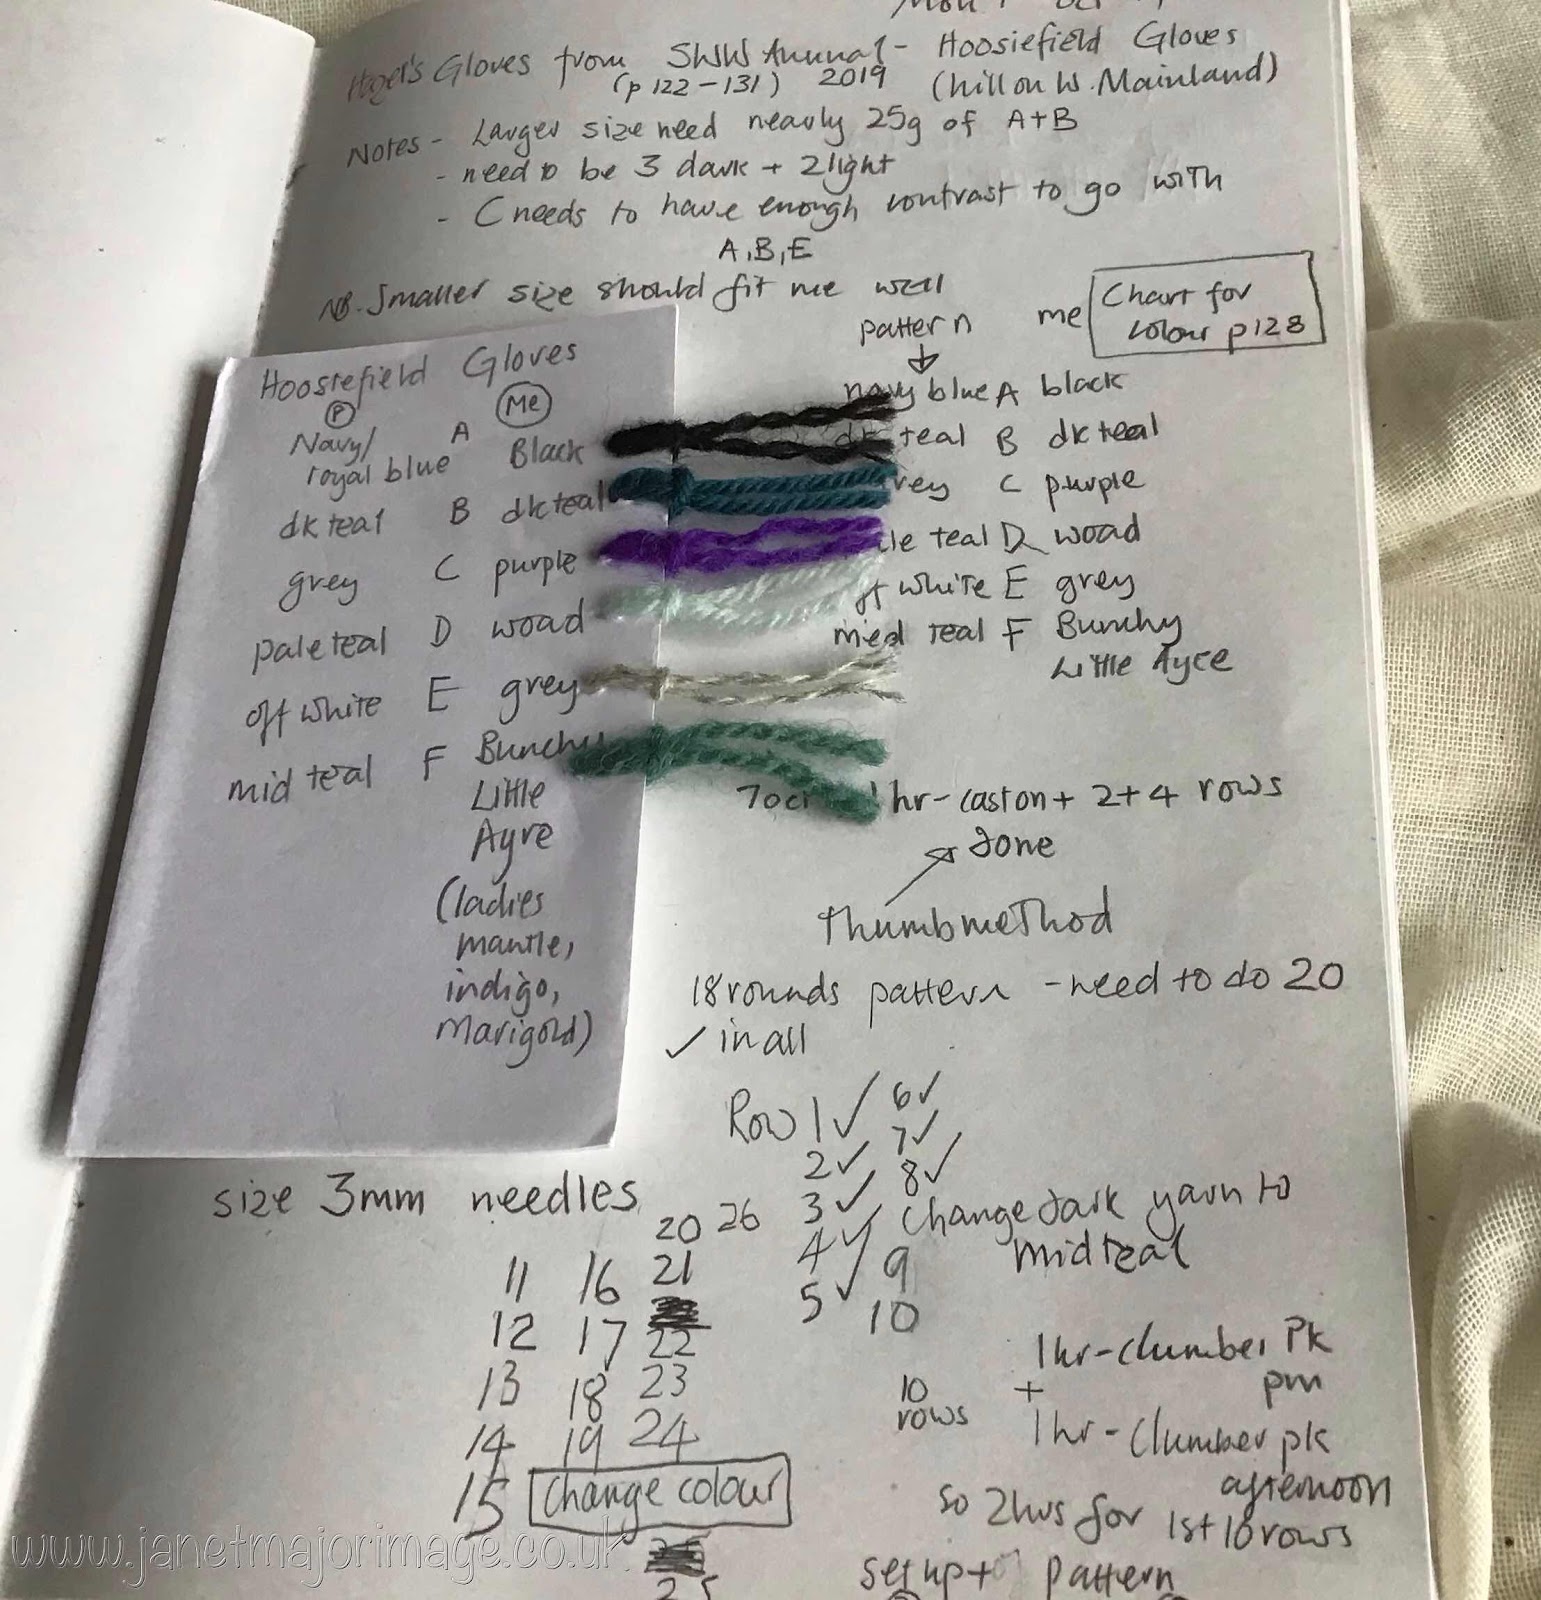 Hazel's Gloves from SWW Annual - Hoosiefield Gloves
(p 122-131) 2019 (hill on W. Mainland)
Notes - Larger size need nearly 25g of A+B
- need to be 3 dark + 2 light
- C needs to have enough contrast to go with
A, B, E
NB. Smaller size should fit me well
pattern me
Chart for
colour p128
navy blue A black
dk teal B dk teal
grey C purple
le teal D woad
white E grey
med teal F Bunchy
Little Ayre
Hoosiefield Gloves
P Me
Navy/
royal blue A Black
dk teal B dk teal
grey C purple
pale teal D woad
off white E grey
mid teal F Bunchy
Little
Ayre
(ladies
mantle,
indigo,
marigold)
7 oct 1 hr - cast on + 2+4 rows
done
thumb method
18 rounds pattern - need to do 20
✓ in all
Row 1 ✓ 6 ✓
7 ✓
2 ✓ 8 ✓
3 ✓ change dark yarn to
mid teal
4 ✓ 9
5 ✓ 10
size 3mm needles
20 26
11 16 21
12 17 22
13 18 23
14 19 24
15 Change colour
25
1 hr - clumber Pk
pm
10
rows
+
1 hr - Clumber pk
afternoon
so 2 hrs for 1st 10 rows
set up + pattern
www.janetmajorimage.co.uk